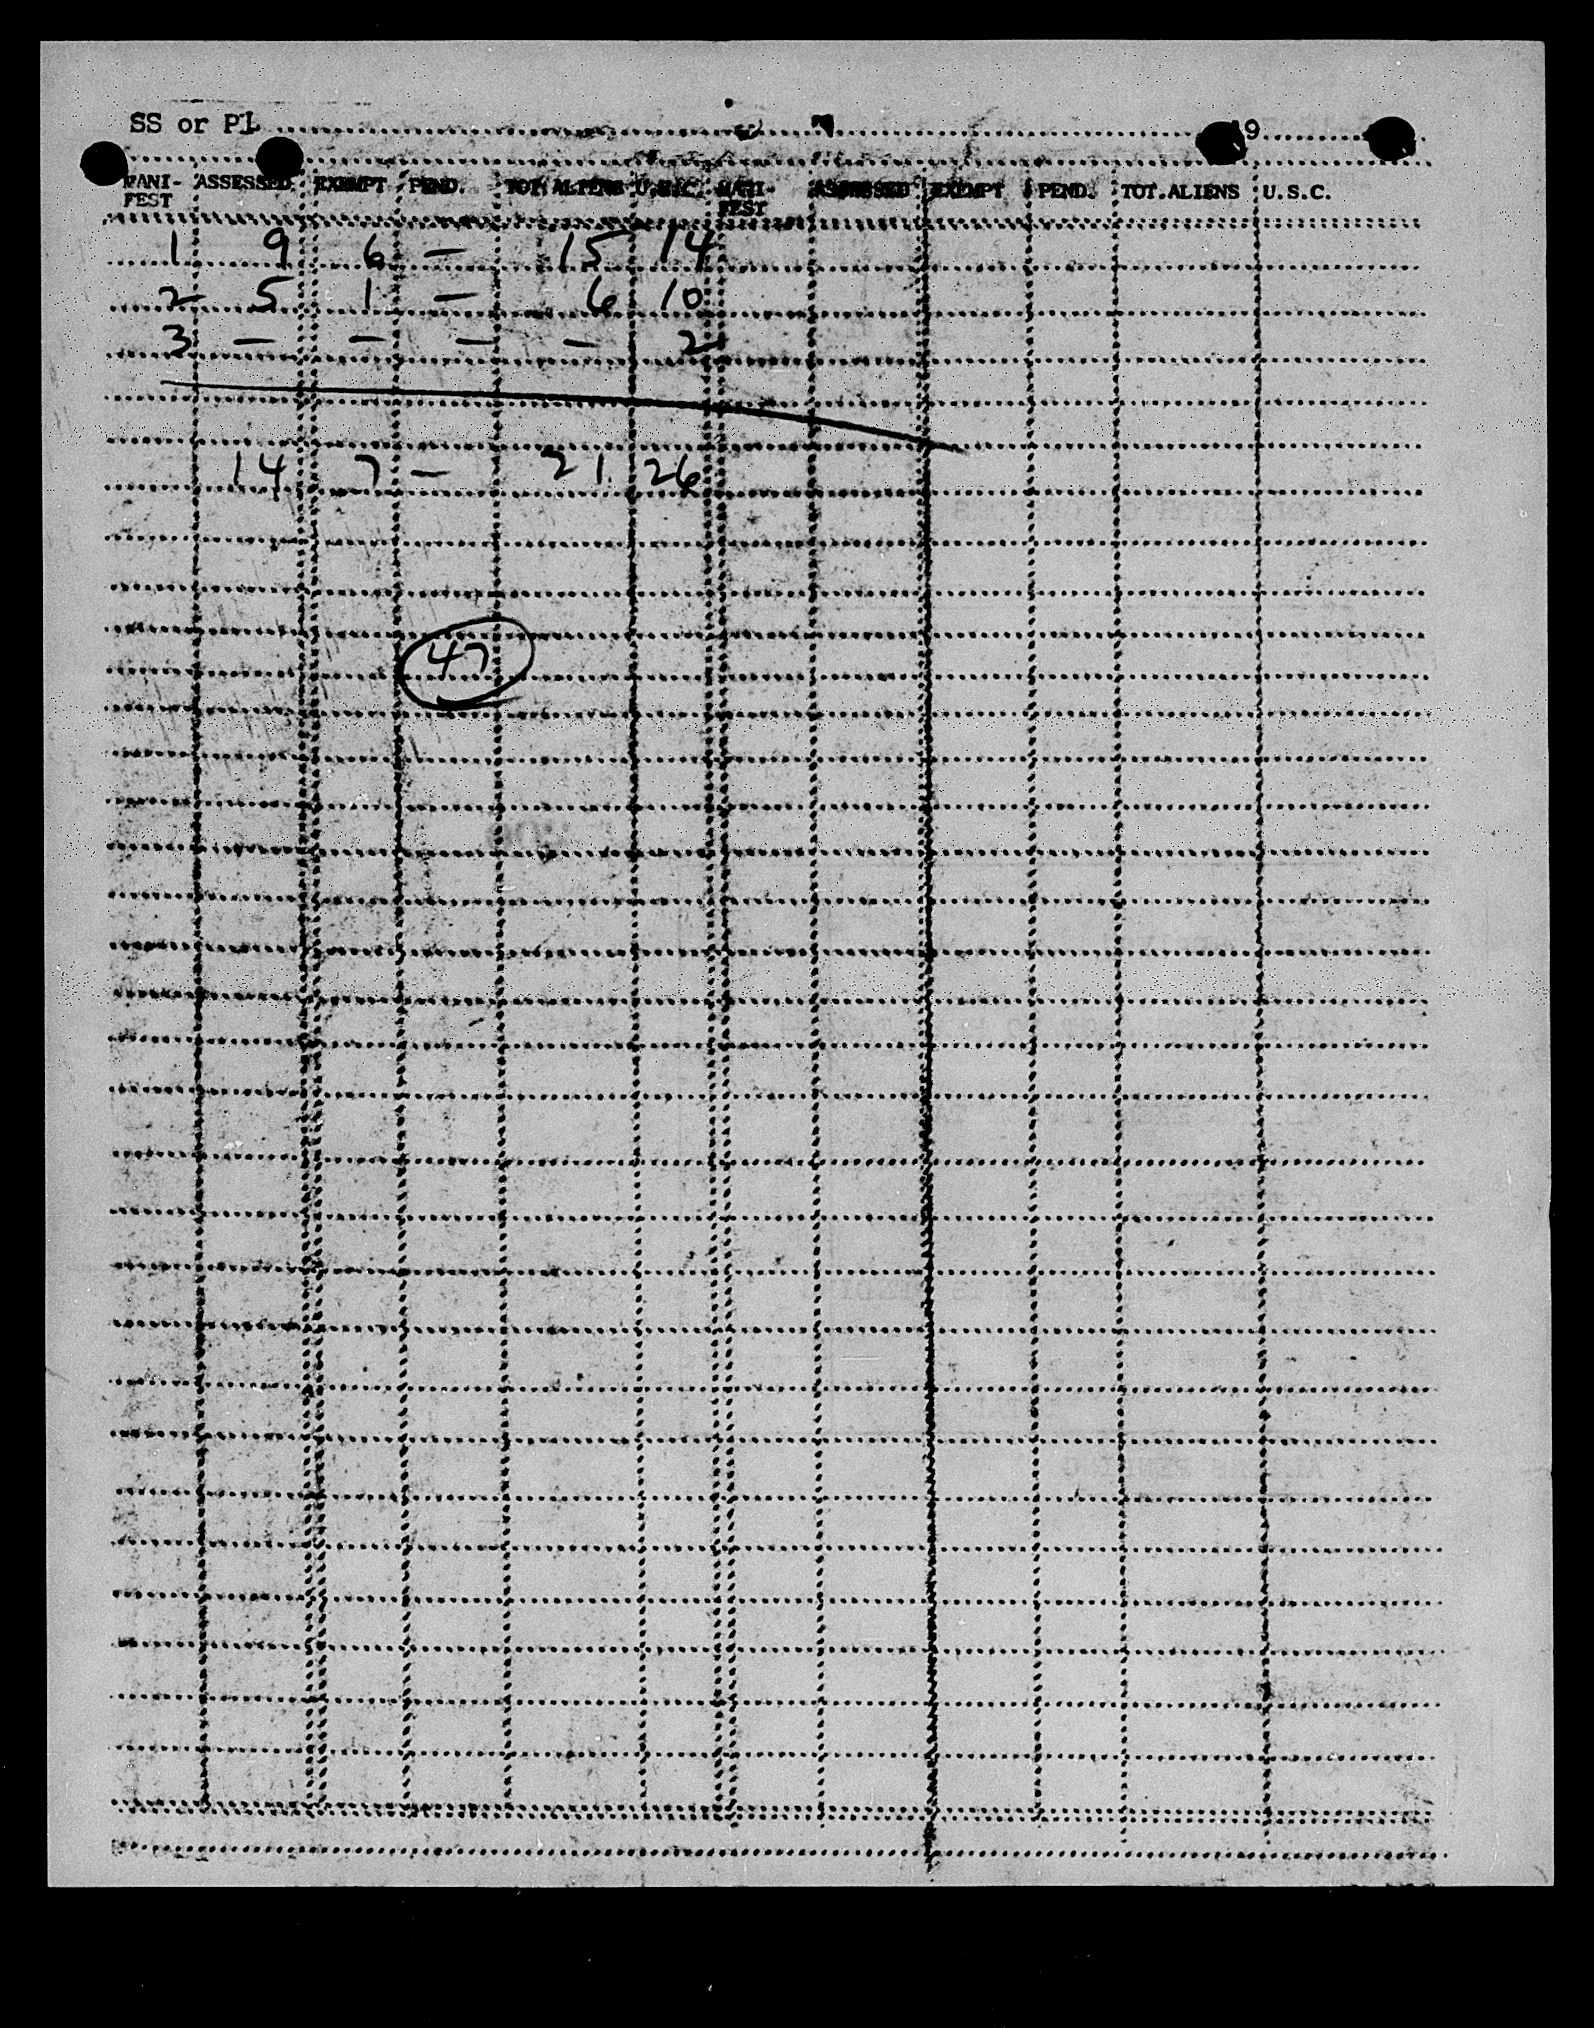 SS or Pl ........ 19........
MANI- ASSESSED EXEMPT PEND. TOT.ALIENS U.S.C. MANI- ASSESSED EXEMPT PEND. TOT.ALIENS U.S.C.
FEST FEST
1 9 6 — 15 14
2 5 1 — 6 10
3 — — — — 2
14 7 — 21 26
47